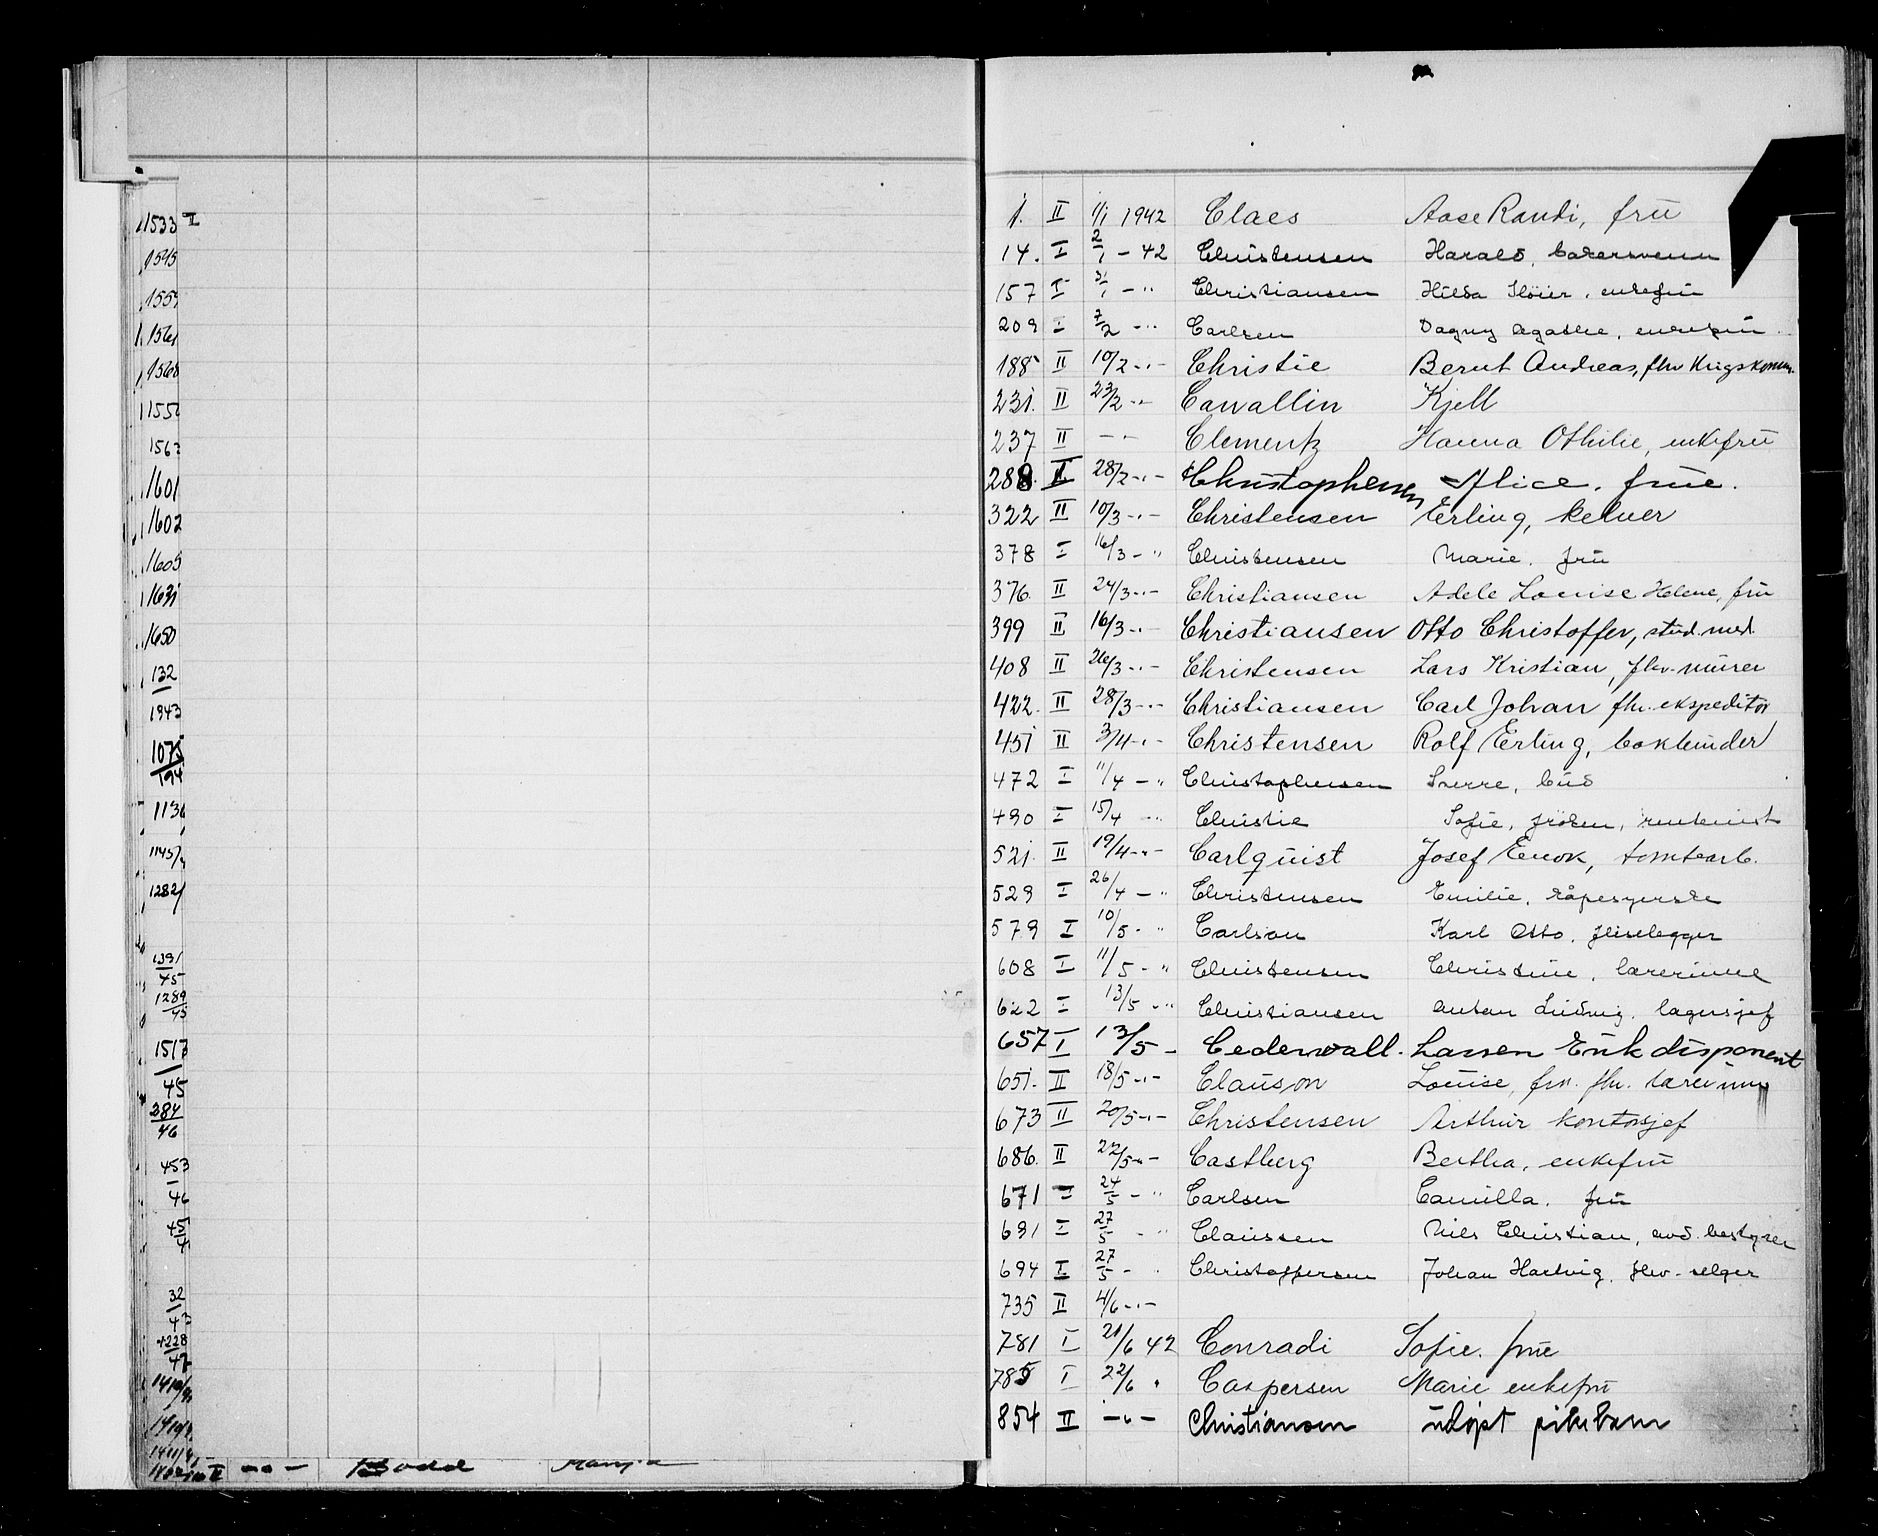 1533 II
1545
1559
1561
1568
1552
1562
1601
1602
1605
1631
1650
132
1943
1075/194
1136
1145/4
1282/
1391/45
1289/45
1517/45
384/46
453/46
45/4
32/43
1228/47
1410/4
II -"- Bodd Manja
1. II 1/1 1942 Claes Aase Randi, frü
14. I 2/1 - 42 Christensen Harald, bakersvenn
157 I 3/1 - " Christiansen Hilda Släier, enkefrü
209 I 7/2 - " Carlsen Dagny Agathe, enkefrü
188 II 10/2 -"- Christie Bernt Andreas, fhv Krigskomm.
231. II 23/2 -"- Cavallin Kjell
237 II -"- Clementz Hanna Othilie, enkefrü
288. I 28/2 -"- Christophersen Alice. frue.
322 II 10/3 -"- Christensen Erling, kelner
378 I 16/3 - " Christensen Marie. frü
376. II 24/3 -"- Christiansen Adele Louise Helene, frü
399 II 16/3 -"- Christiansen Otto Christoffer, stud. med.
408 II 26/3 -"- Christensen Lars Kristian, fhv. mürer
422. II 28/3 -"- Christiansen Carl Johan fhv. ekspeditør
451 II 3/4 -"- Christensen Rolf Erling, bokbinder
472 I 11/4 - " Christophersen Sverre, büd
490 I 15/4 - " Christie Sofie, frøken, rentenist
521. II 19/4 -"- Carlquist Josef Enok, tomtearb.
529 I 26/4 - " Christensen Emilie, kåpesyerske
579 I 10/5 - " Carlson Karl Otto, fliselegger
608 I 11/5 - " Christensen Christine, lærerinne
622 I 13/5 - " Christiansen Anton Ludvig, lagersjef
657 I 13/5 - Cederwall. Larsen Erik disponent
651. II 18/5 -"- Clauson Louise, frk. fhv. lærerinne
673 II 20/5 -"- Christensen Arthur kontorsjef
686. II 22/5 -"- Castberg Bertha, enkefrü
671 I 24/5 - " Carlsen Camilla. frü
691 I 27/5 - " Claussen Nils Christian, avd. bestyrer
694 I 27/5 - " Christoffersen Johan Hartvig, fhv. selger
735 II 4/6 -"-
781 I 21/6 42 Conradi Sofie. früe
785 I 22/6 " Caspersen Marie enkefrü
854 II -"- Christiansen udøpt pikebarn